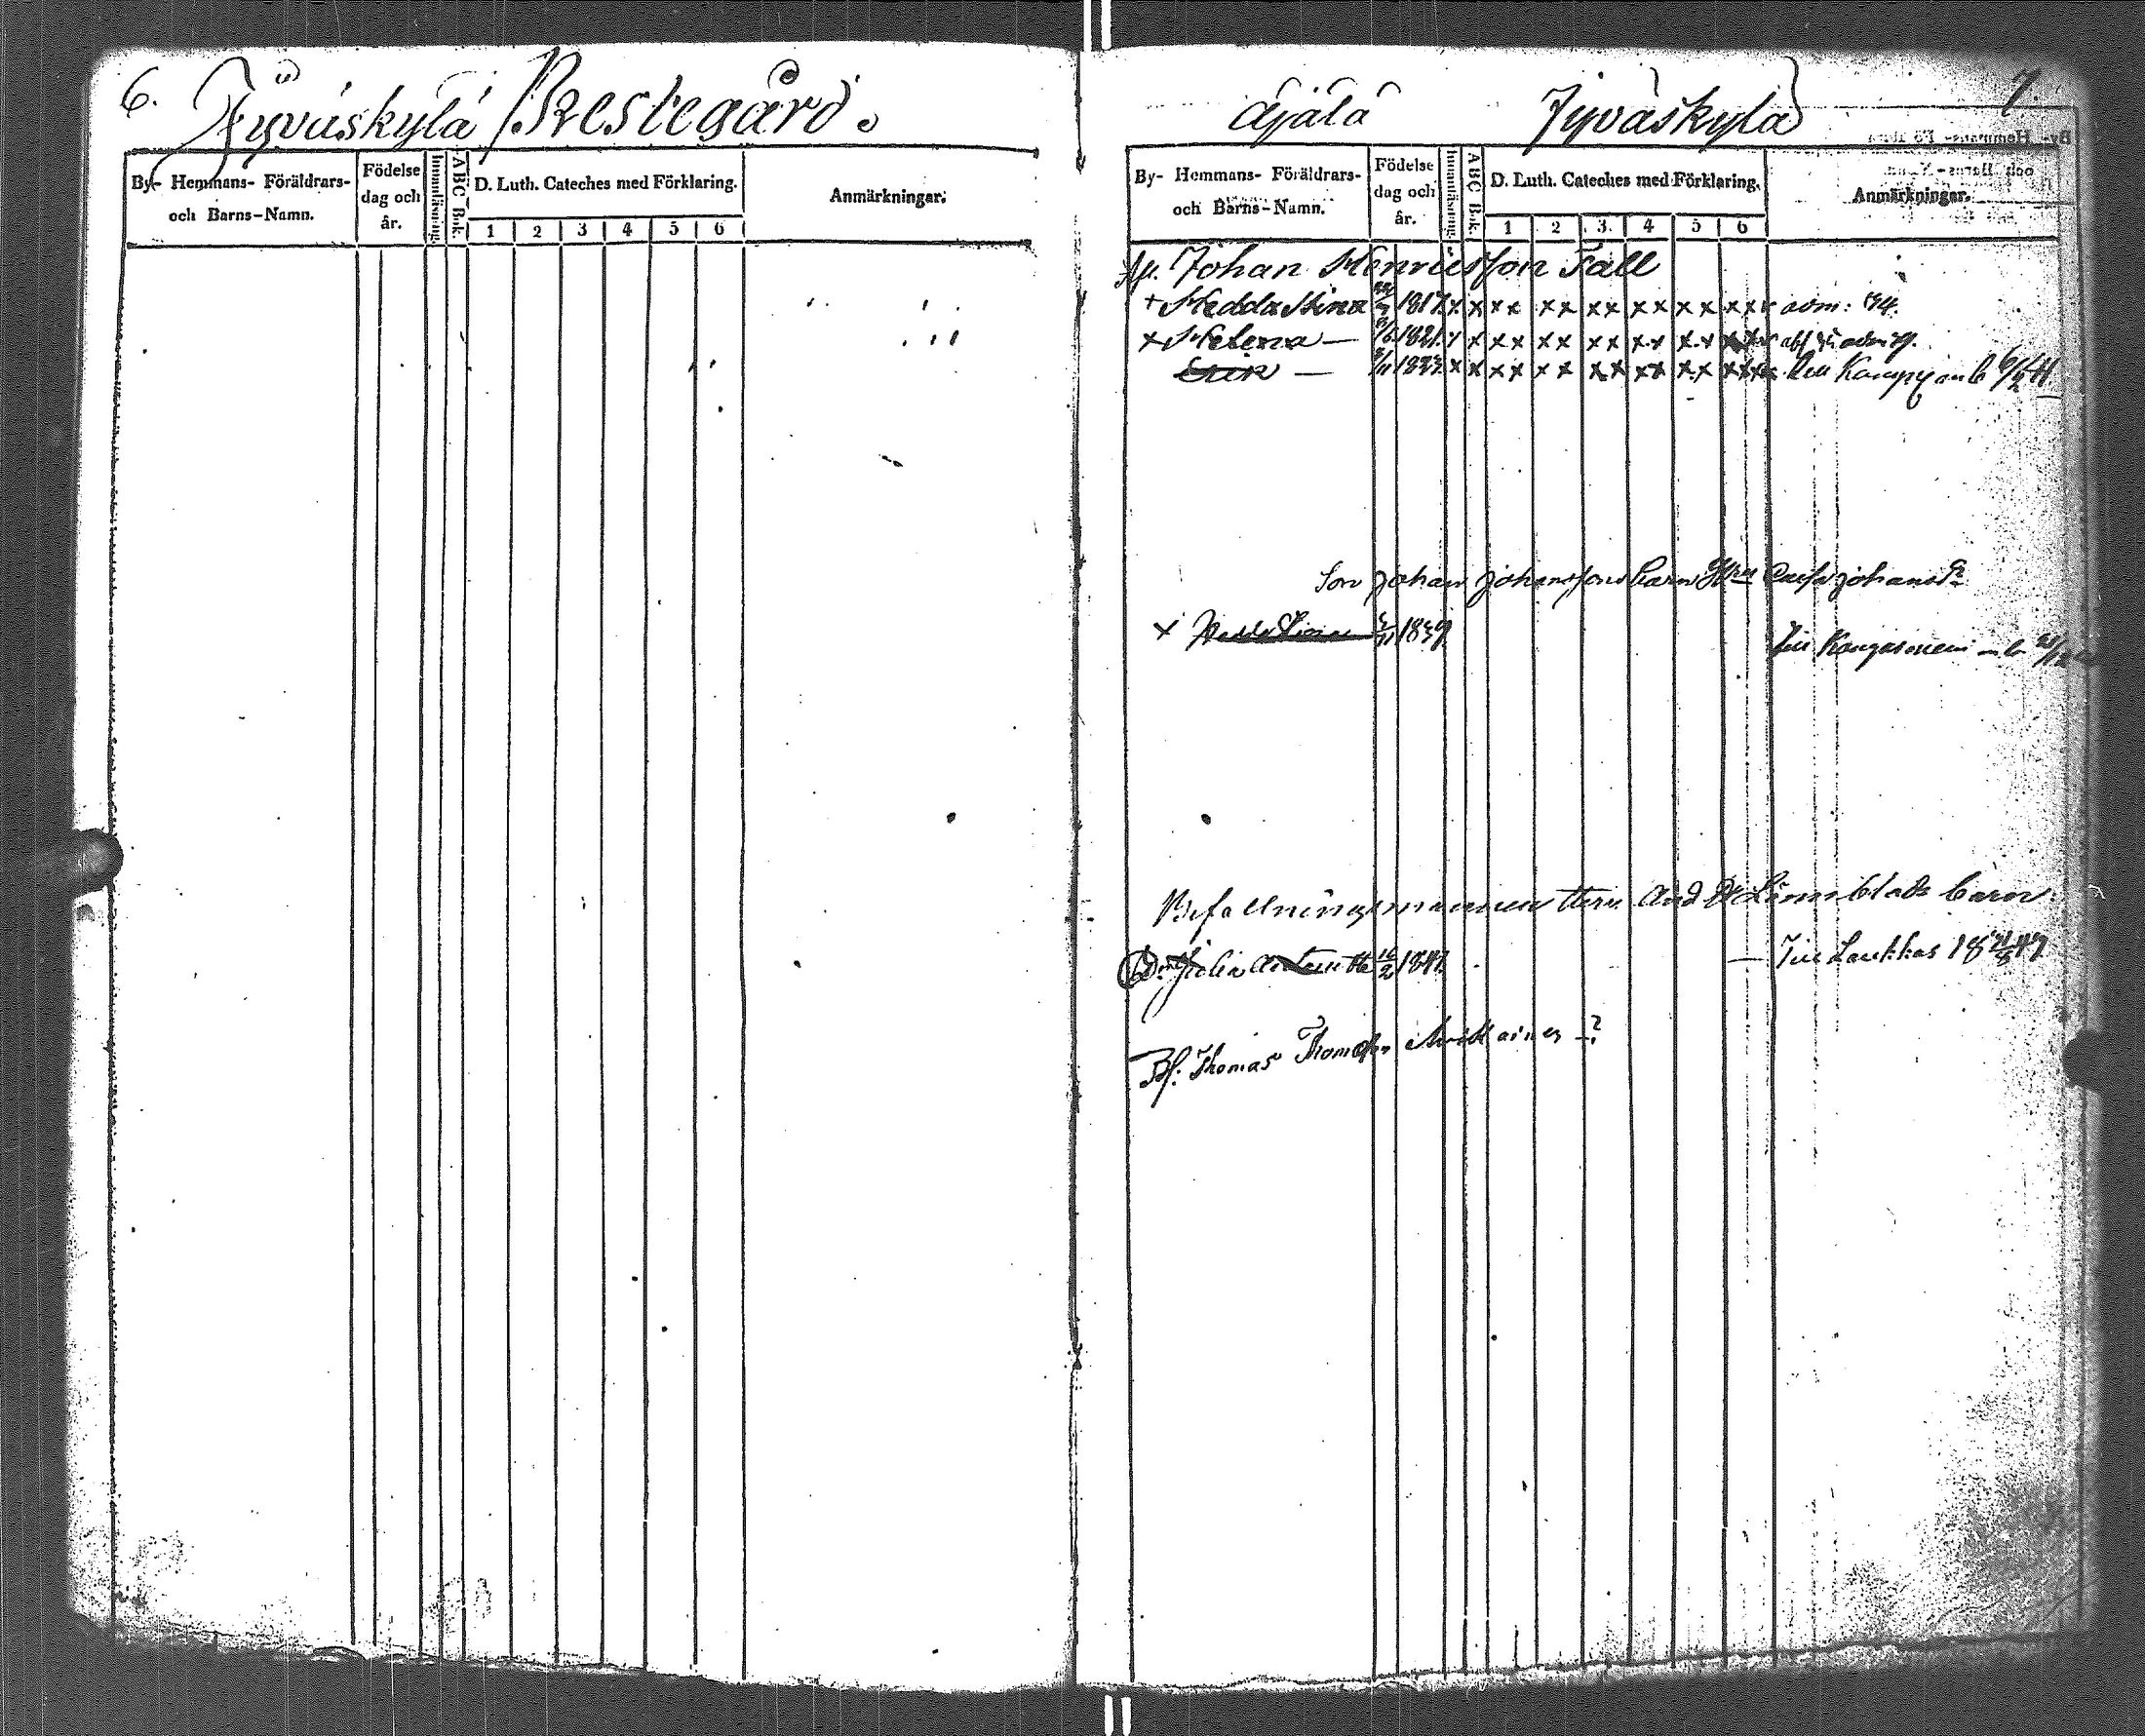 6. Jyväskylä Prestegård.
By- Hemmans- Föräldrars- och Barns-Namn.
Födelse dag och år.
Innanläsning.
ABC Bok.
D. Luth. Cateches med Förklaring.
1 2 3 4 5 6
Anmärkningar.
Äjälä Jyväskylä 7
By- Hemmans- Föräldrars- och Barns-Namn.
Födelse dag och år.
Innanläsning.
ABC Bok.
D. Luth. Cateches med Förklaring.
1 2 3. 4 5 6
Anmärkningar.
Johan Henricsson Fall
+ Hedda Stina 1817. x x xx xx xx xx xx xxx adm: 34.
x Helena — 1821. x x xx xx xx xx xx
Erik — 3/11 1823. x x xx xx xx xx xx xxx
Son Johan Johanssons barn Johansdr
x Hedda Stina 1839 Till Kangasniemi
Befallningsmannen Herr And Lönnblads barn
Julia 16/2 1847. — Till Laukkas 18 47
Bf: Thomas Thomass. ?